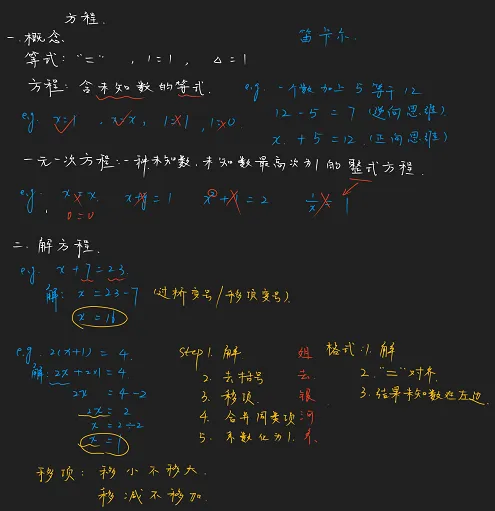 方程.
一.概念. 笛卡尔.
等式:"=" , 1=1 , △=1
方程:含未知数的等式. e.g. 一个数加上5等于12
12-5=7 (逆向思维)
e.g. x=1 , x=x, 1=1, 1=0
x+5=12 (正向思维)
一元一次方程:一种未知数,未知数最高次为1的整式方程.
e.g. x=x x+y=1 x²+1=2 1/x=1
0=0
二.解方程.
e.g. x+7=23.
解: x=23-7 (过桥变号/移项变号)
x=16
e.g. 2(x+1)=4. Step 1. 解 姐 格式:1. 解
解:2x+2×1=4. 2. 去括号 去 2. "="对齐
2x =4-2 3. 移项. 银 3. 结果未知数在左边.
2x=2 4. 合并同类项 河
x=2÷2 5. 系数化为1. 系
x=1
移项:移小不移大.
移减不移加.